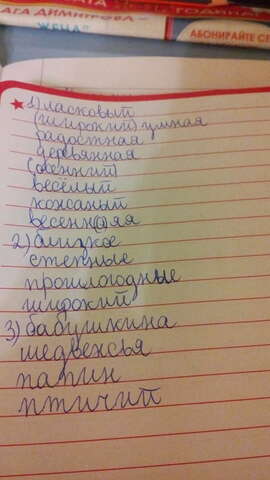 АГА ДИМИТРОВА –
"ЖЕНА"
АБОНИРАЙТЕ СЕ
1) ласковый
(широкий) умная
радостная
деревянная
(осенний)
весёлый
кожаный
весенн(а)яя
2) близкое
степные
прошлогодные
широкий
3) бабушкина
медвежья
папин
птичий